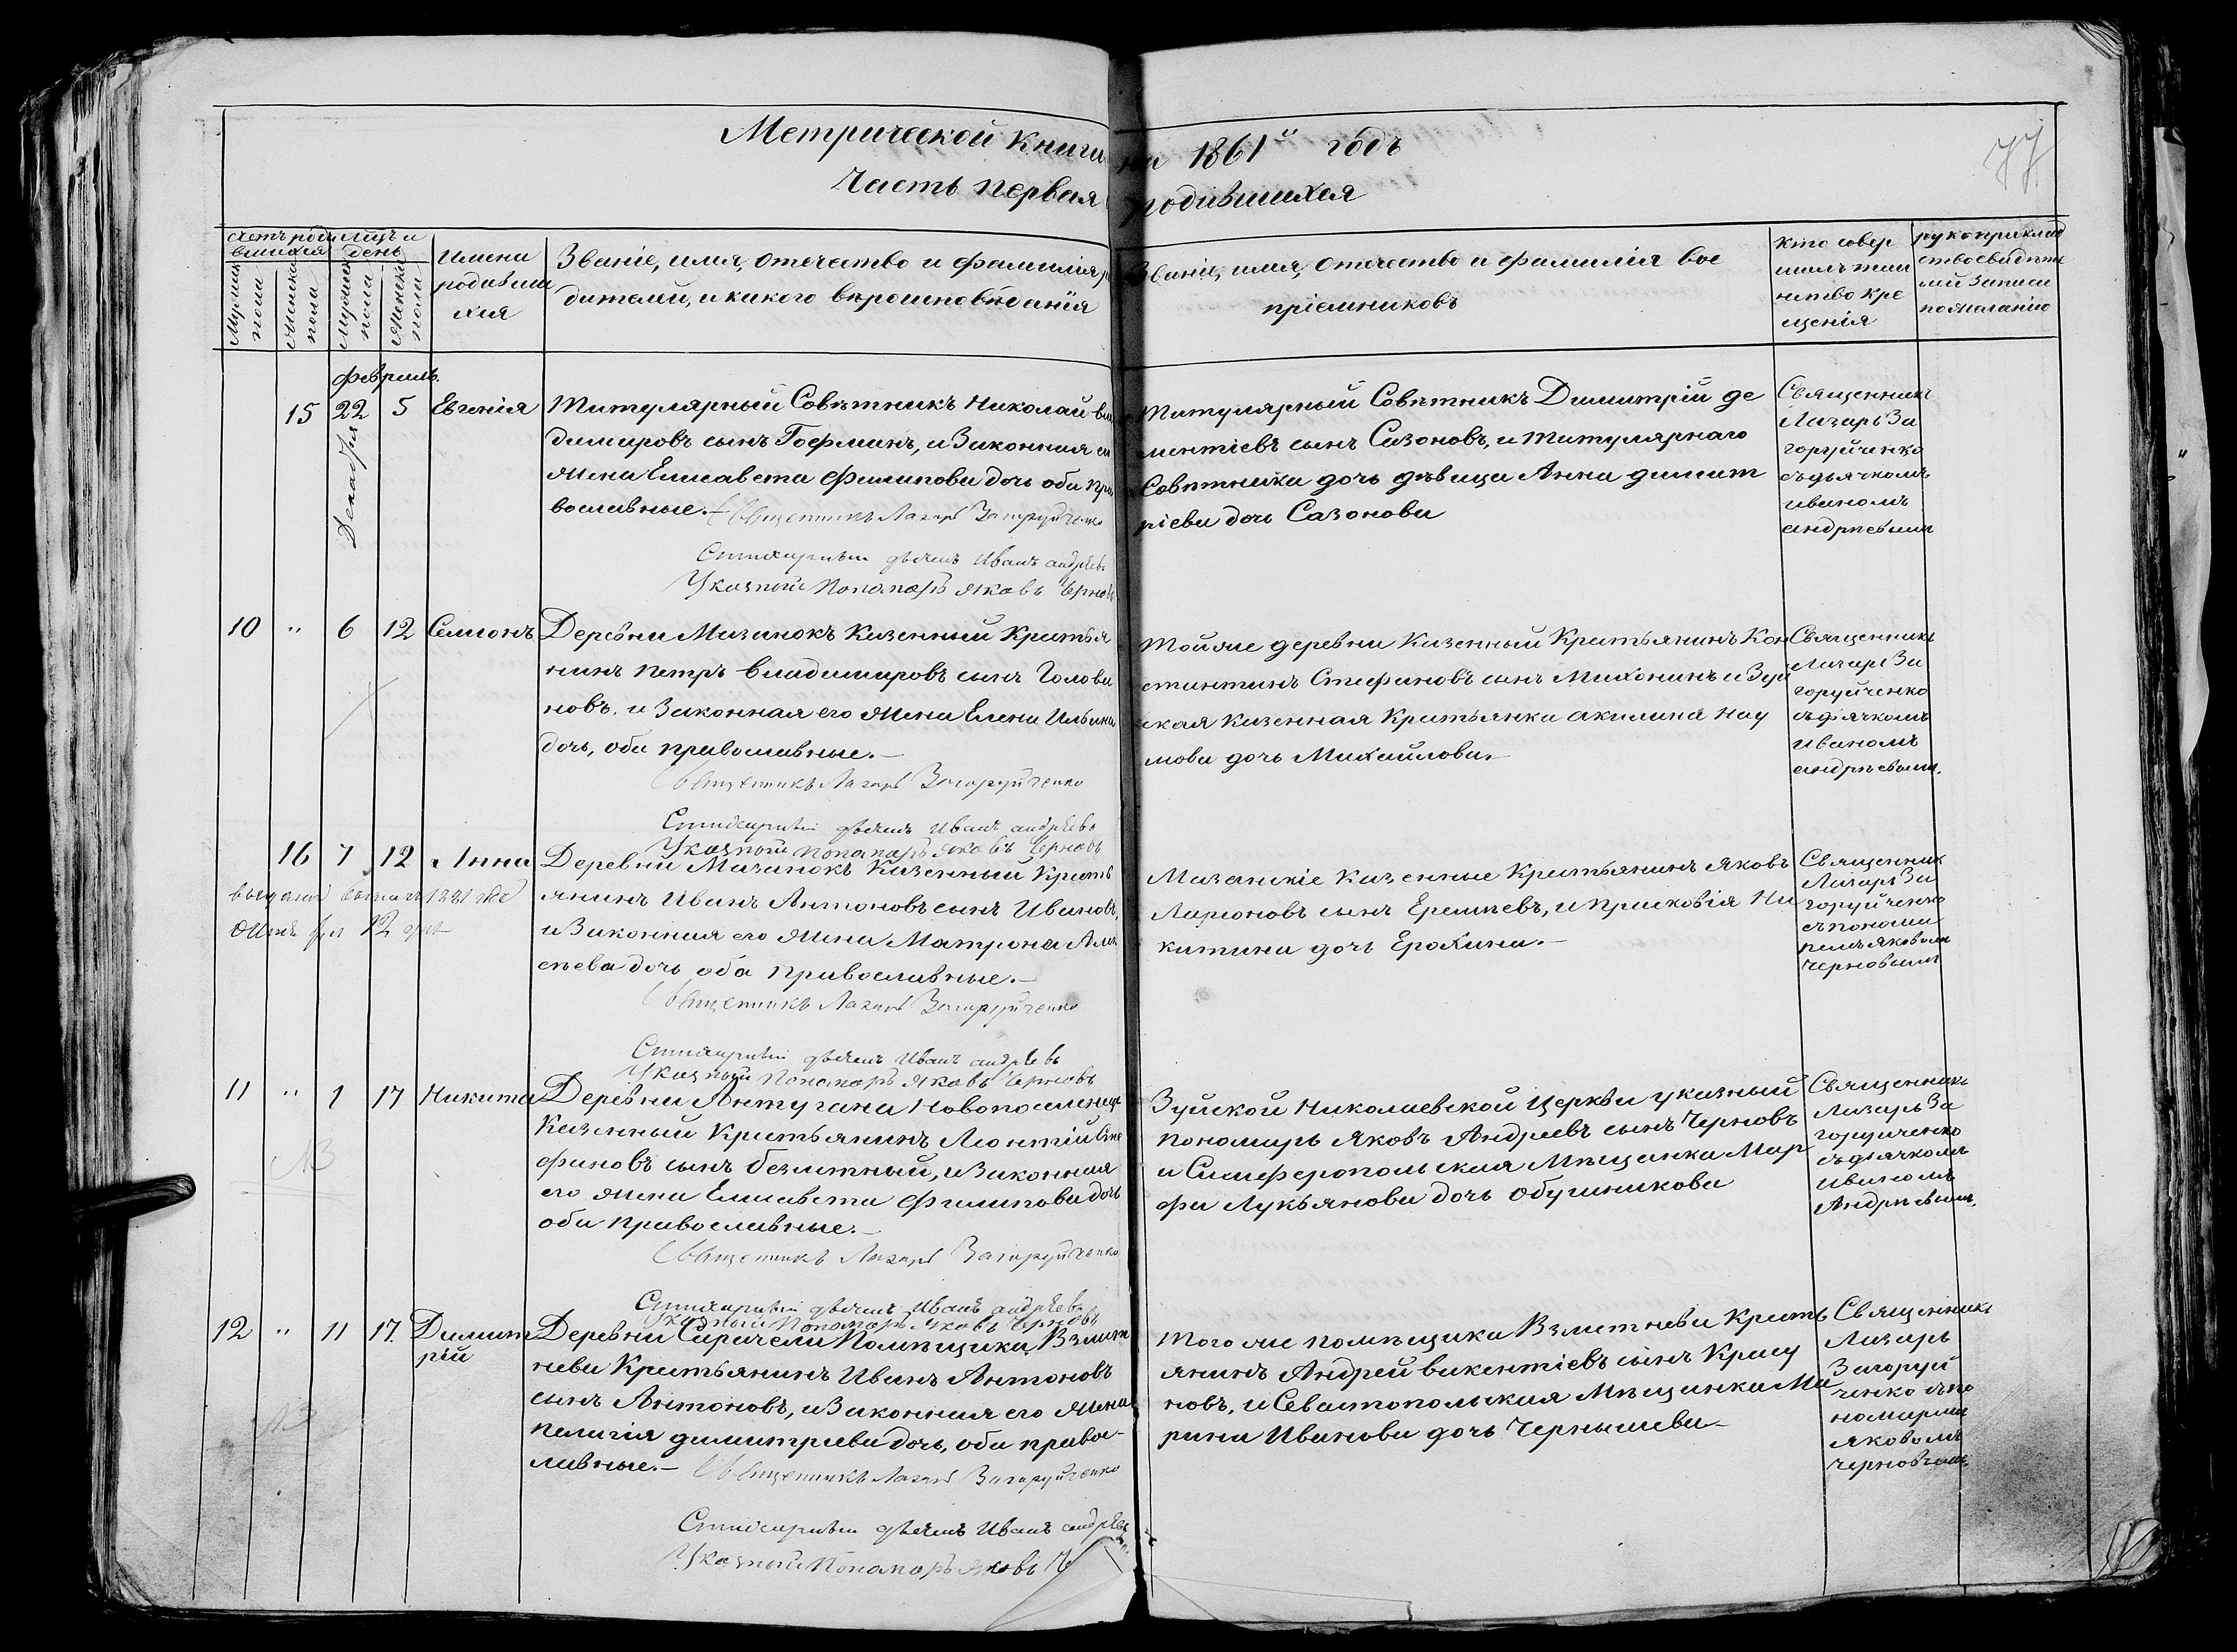 Метрической книги на 1861й годъ
Часть первая родившихся
77
Счетъ роди
вшихся
Мѣсяцъ и
день
Мужеска
пола
Женска
пола
Мужеска
пола
Женска
пола
Имена
родивши
хся
Званіе, имя, отечество и фамилія ро
дителей, и какого вѣроисповѣданія
Званіе, имя, отечество и фамилія вос
пріемниковъ
Кто совер
шалъ таи
нство кре
щенія
рукоприклад
ство свидѣте
лей записи
по желанію
февраль.
Декабря
15 22 5 Евгенія
Титулярный Совѣтникъ Николай Вла
димировъ сынъ Гофманъ, и Законная его
жена Елисавета Филипова дочь оба пра
вославные.–
Священникъ Лазарь Загоруйченко
Стихарный дьячекъ Иванъ андрѣевъ
Указный Понамарь Яковъ Черновъ
Титулярный Совѣтникъ Димитрій де
ментіевъ сынъ Сазоновъ, и титулярнаго
Совѣтника дочь дѣвица Анна димит
ріева дочь Сазонова
Священникъ
Лазарь За
горуйченко
съ дьячкомъ
иваномъ
андрѣевымъ
10 " 6 12 Семіонъ
Деревни Мазанокъ Казенный Крестья
нинъ Петръ Владимировъ сынъ Голова
новъ. и Законная его жена Елена Ильина
дочь, оба православные.–
Священникъ Лазарь Загоруйченко
Стихарный дьячекъ Иванъ андрѣевъ
Указный Понамарь Яковъ Черновъ
Тойже деревни Казенный Крестьянинъ Кон
стантинъ Стефановъ сынъ Михонинъ и Зуй
ская Казенная Крестьянка акилина Нау
мова дочь Михайлова.
Священникъ
Лазарь За
горуйченко
съ дьячкомъ
Иваномъ
андрѣевымъ.
16 7 12 Анна
1881 года
12 дня
Деревни Мазанокъ Казенный Кресть
янинъ Иванъ Антоновъ сынъ Ивановъ,
и Законная его жена Матрона Але
сѣева дочь оба православные.–
Священникъ Лазарь Загоруйченко
Стихарный дьячекъ Иванъ андрѣевъ
Указный Понамарь Яковъ Черновъ
Мазанскіе Казенные Крестьянинъ Яковъ
Ларионовъ сынъ Еремѣевъ, и Прасковія Ни
китина дочь Ерохина.–
Священникъ
Лазарь За
горуйченко
съ понома
ремъ Яковомъ
Черновымъ
11 " 1 17 Никита
Деревни Антугана Новопоселенецъ
Казенный Крестьянинъ Леонтій Сте
фановъ сынъ Безлитный, и Законная
его жена Елисавета Филипова дочь
оба православные.–
Священникъ Лазарь Загоруйченко
Стихарный дьячекъ Иванъ андрѣевъ
Указный Понамарь Яковъ Черновъ
Зуйской Николаевской Церкви указный
Пономарь Яковъ Андреевъ сынъ Черновъ
и Симферопольская Мѣщанка Мар
фа Лукьянова дочь Обушникова
Священникъ
Лазарь За
горуйченко
съ дьячкомъ
Иваномъ
Андрѣевымъ.
12 " 11 17. Димит
рій
Деревни Сарачели Помѣщика Взмет
нева Крестьянинъ Иванъ Антоновъ
сынъ Антоновъ, и Законная его жена
Пелагія димитріева дочь, оба право-
лавные.–
Священникъ Лазарь Загоруйченко
Стихарный дьячекъ Иванъ андрѣевъ
Указный Понамарь Яковъ Ч
Того же помѣщика Взметнева Кресть
янинъ Андрей викентіевъ сынъ Красу
новъ, и Севастопольская Мѣщанка Ма
рина Иванова дочь Чернышева–
Священникъ
Лазарь
Загоруй
ченко съ по
номаремъ
Яковомъ
Черновымъ